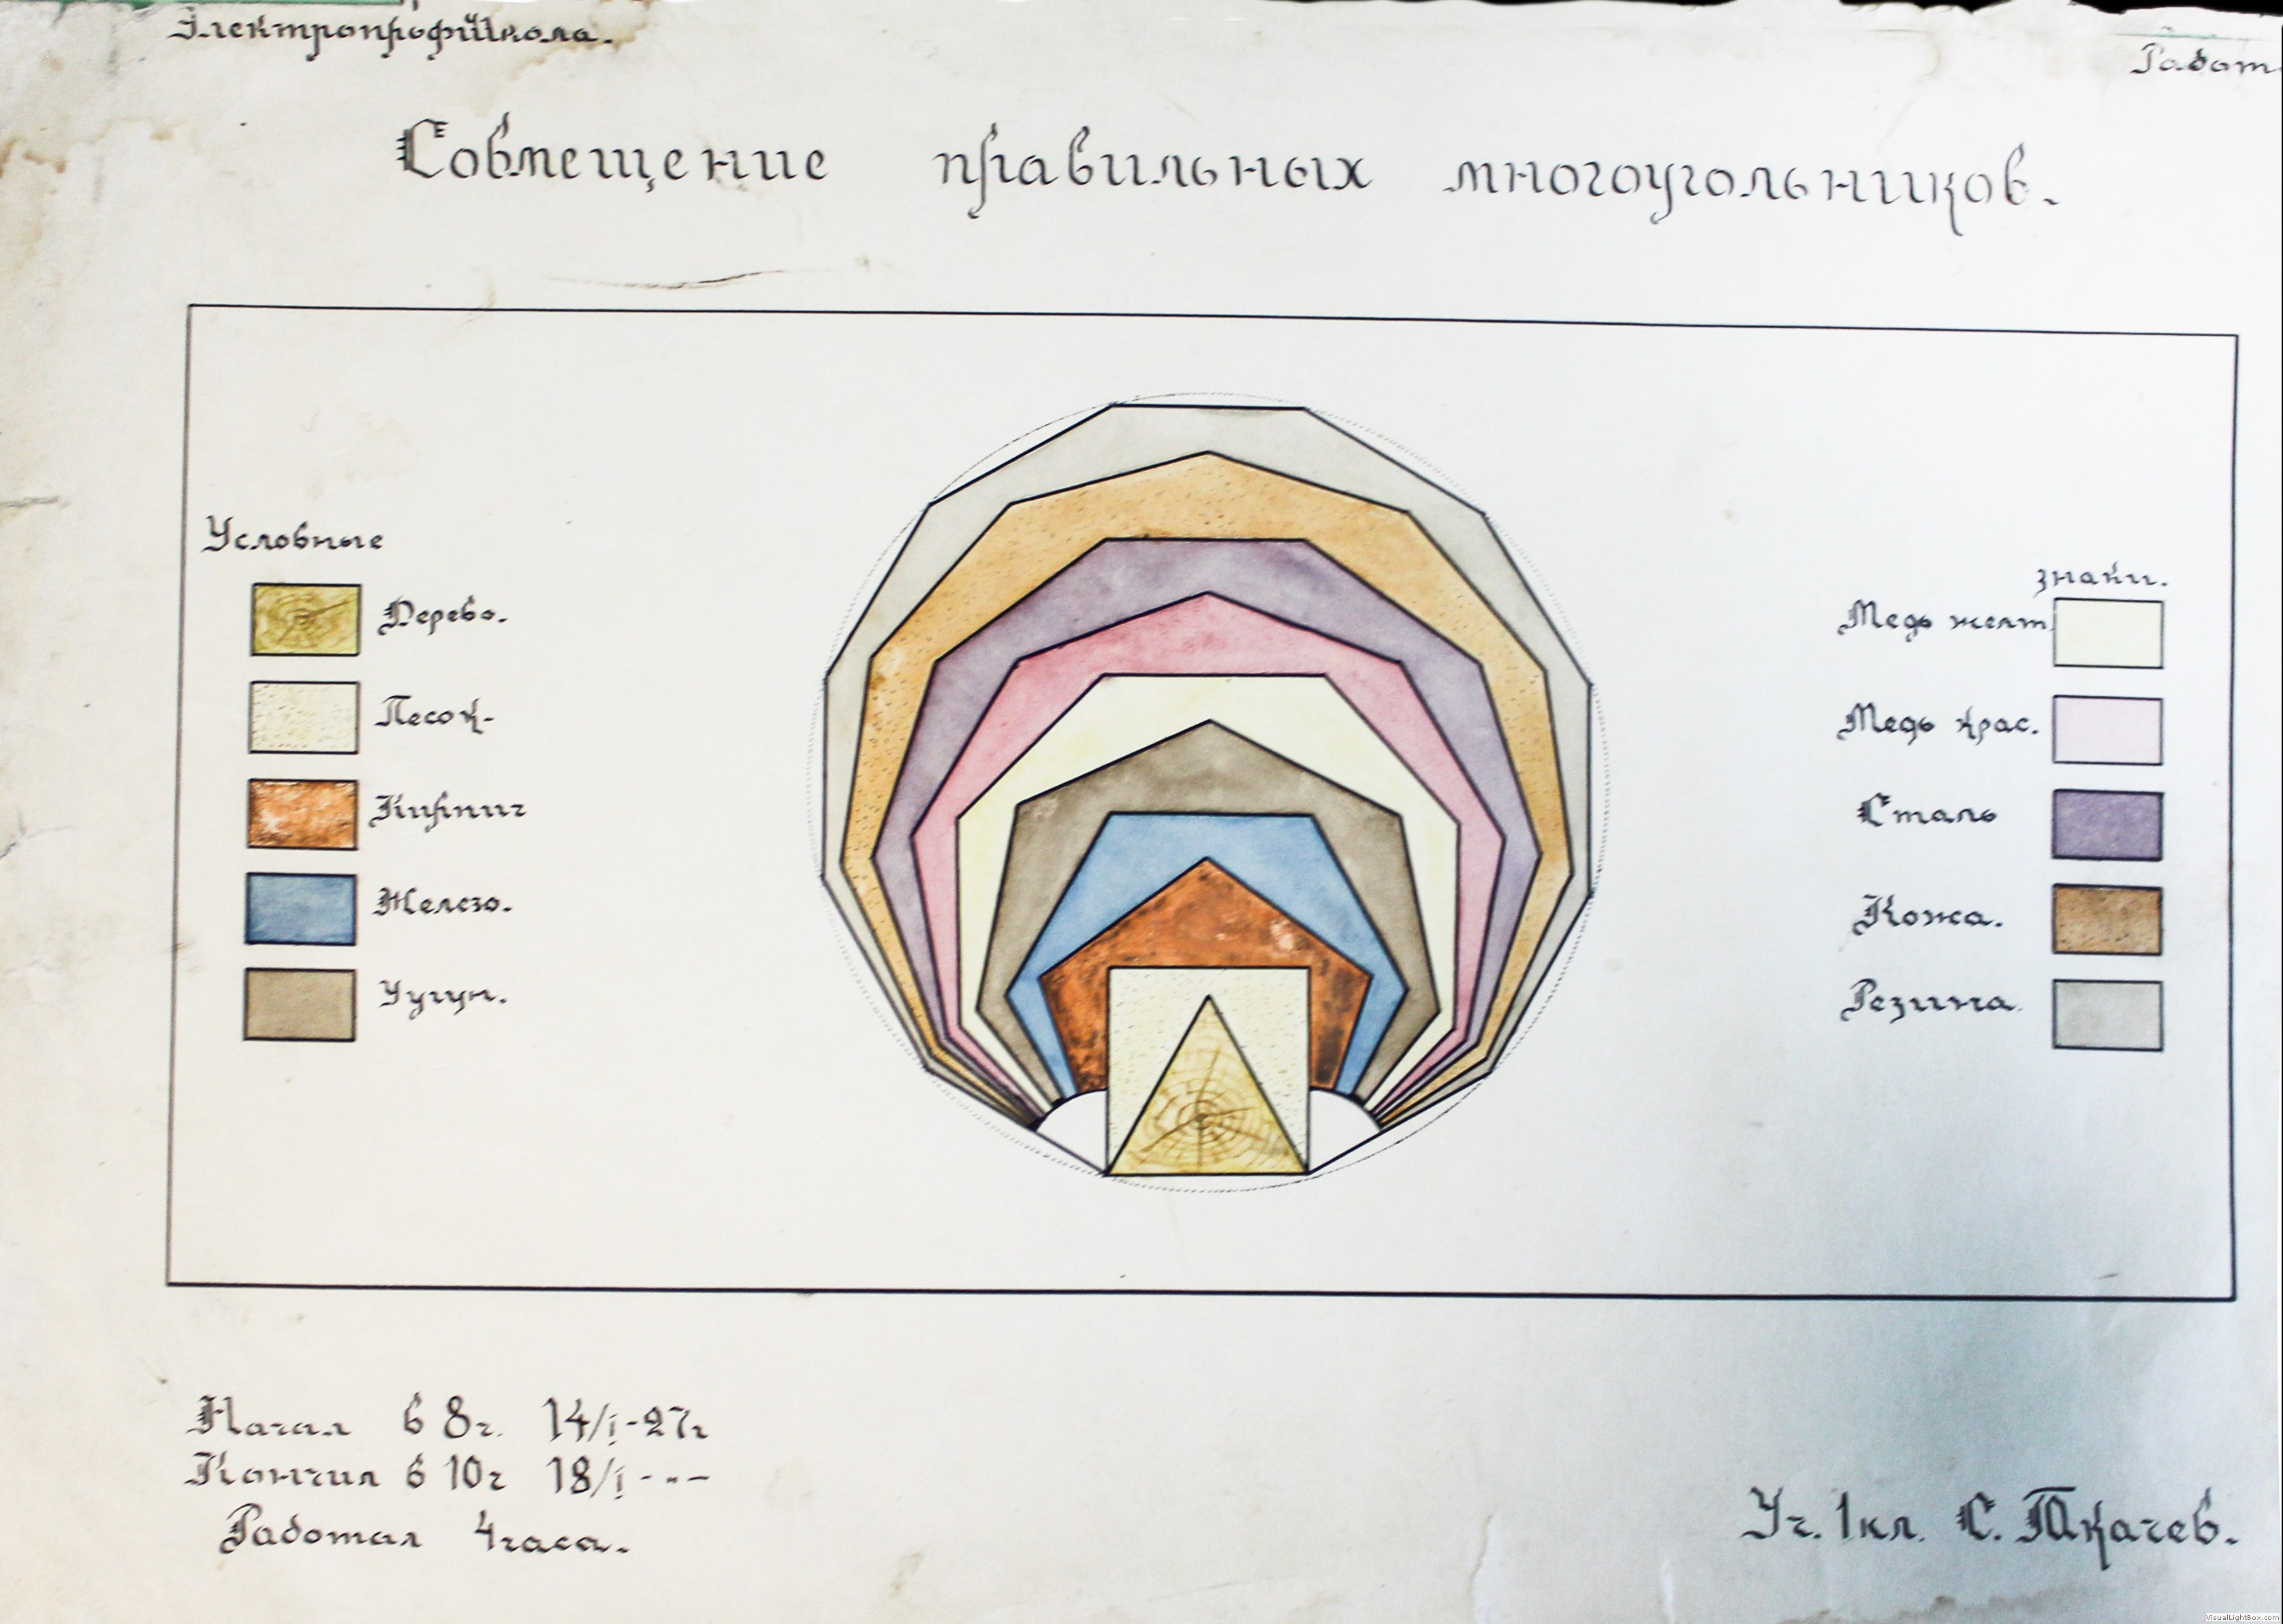 ЭлектропрофШкола.
Работ
Совмещение правильных многоугольников.
Условные
знаки.
Дерево.
Песок.
Кирпич
Железо.
Чугун.
Медь желт
Медь крас.
Сталь
Кожа.
Резина.
Начал в 8ч. 14/I-27г
Кончил в 10ч 18/I-"-
Работал 4часа.
Уч. 1кл. С. Ткачев.
VisualLightBox.com